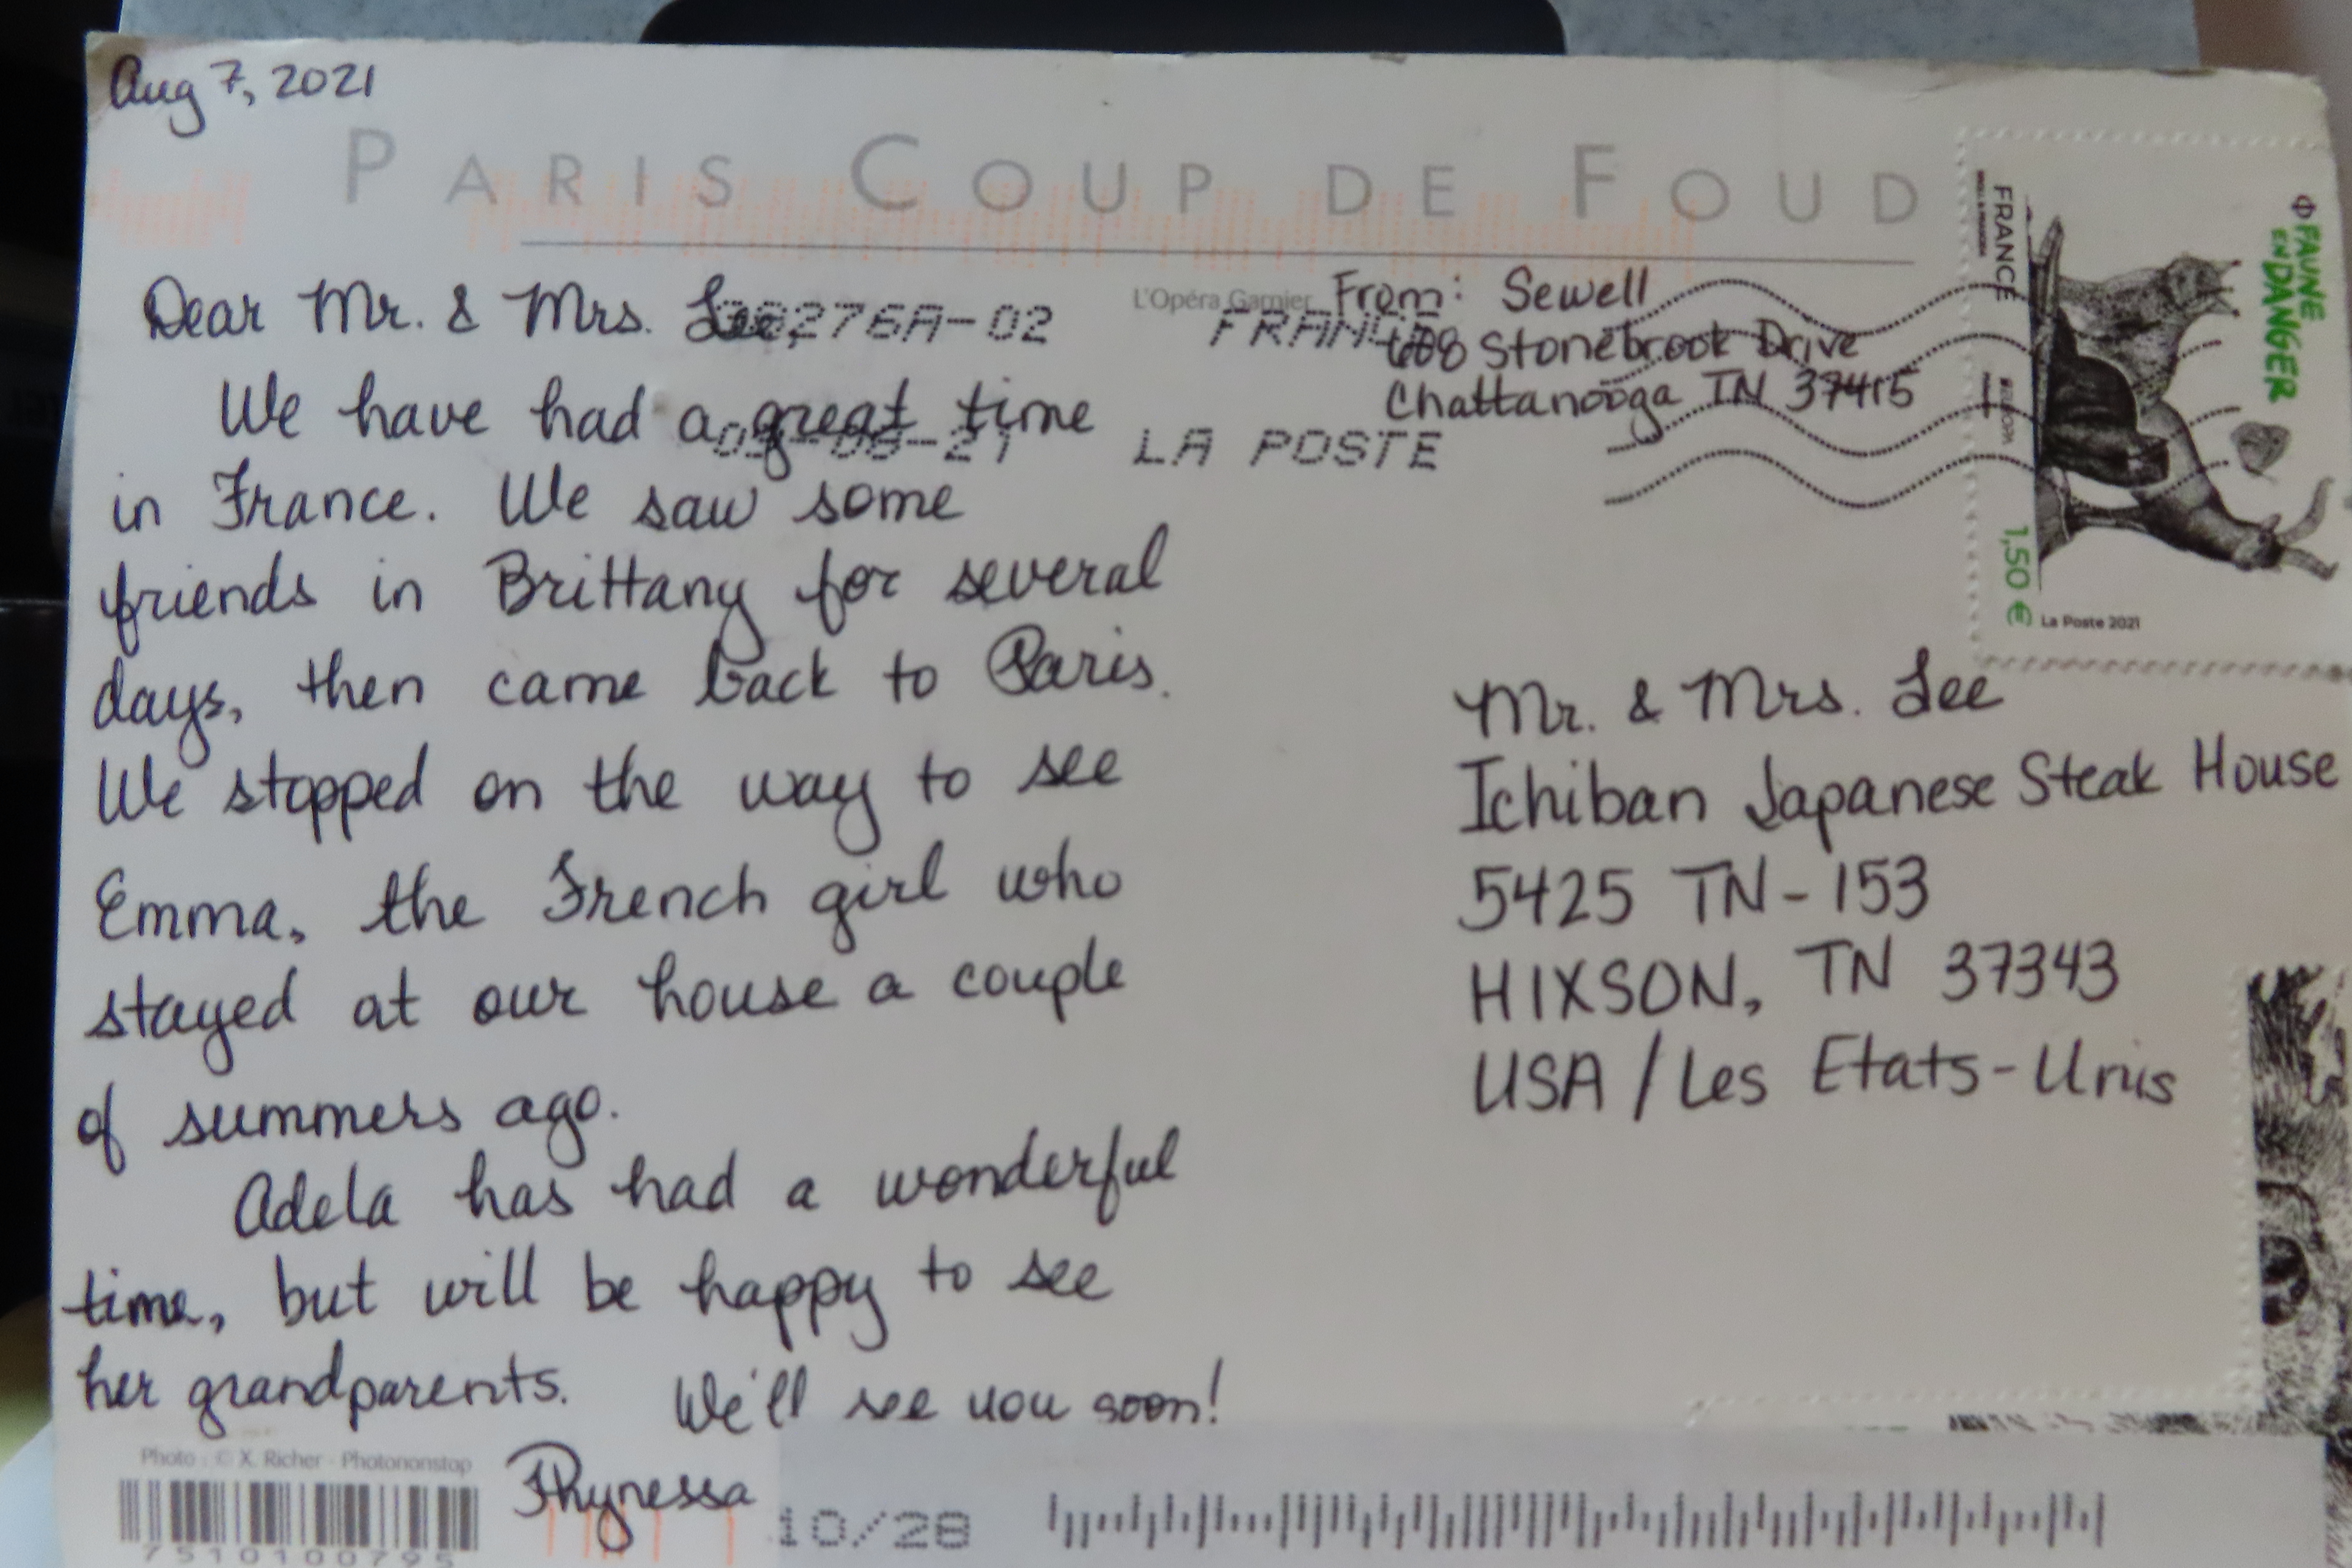 Aug 7, 2021
PARIS COUP DE FOUD
L'Opéra Garnier
Dear Mr. & Mrs. Lee,
We have had a great time
in France. We saw some
friends in Brittany for several
days, then came back to Paris.
We stopped on the way to see
Emma, the French girl who
stayed at our house a couple
of summers ago.
Adela has had a wonderful
time, but will be happy to see
her grandparents. We'll see you soon!
Thynessa
From: Sewell
608 Stonebrook Drive
Chattanooga TN 37415
276A-02 FRANCE
-08-21 LA POSTE
FAUNE
EN DANGER
FRANCE
EUROPA
1,50 €
La Poste 2021
Mr. & Mrs. Lee
Ichiban Japanese Steak House
5425 TN-153
HIXSON, TN 37343
USA / Les Etats-Unis
Photo : © X. Richer - Photononstop
7510100795
10/28